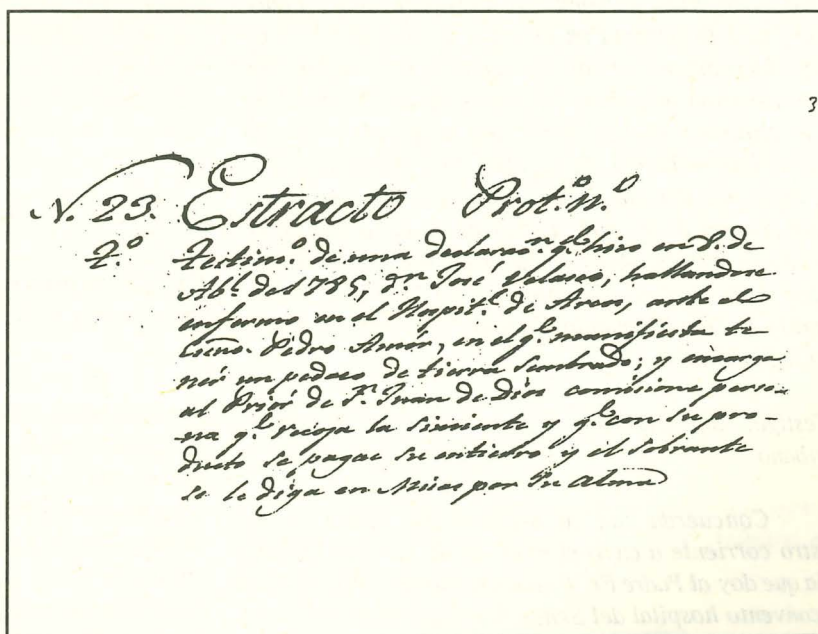 3
N. 23. Estracto Prot.o n.o
2.o Testim.o de una declarac.n q.e hizo en 8. de
Ab.l de 1785, d.n José Velasco, hallandose
enfermo en el Hospit.l de Arcos, ante el
escno. Pedro Amór, en el q.e manifiesta te
nér un pedazo de tierra sembrado; y encarga
al Priór de S.n Juan de Dios comisione perso-
na q.e recoja la simiente y q.e con su pro-
ducto se pague su entierro y el sobrante
se le diga en Misas por su alma